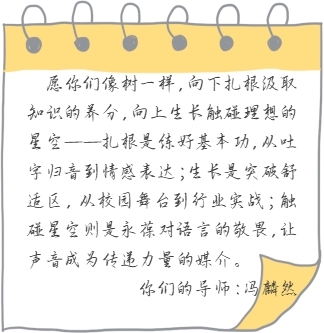 愿你们像树一样,向下扎根汲取
知识的养分,向上生长触碰理想的
星空——扎根是练好基本功,从吐
字归音到情感表达;生长是突破舒
适区,从校园舞台到行业实战;触
碰星空则是永葆对语言的敬畏,让
声音成为传递力量的媒介。
你们的导师:冯麟然